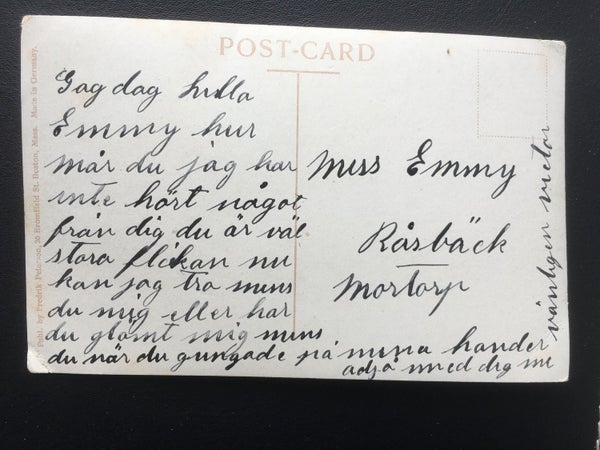 POST-CARD
Gag dag hilla
Emmy hur
mår du jag har
inte hört något
från dig du är väl
stora flickan nu
kan jag tro mins
du mig eller har
du glömt mig mins
du när du gungade på mina hander
adjo med dig
vänligen
Miss Emmy
Råsbäck
Mortorp
Publ. by Fredrik Peterson, 30 Bromfield St. Boston, Mass. Made in Germany.